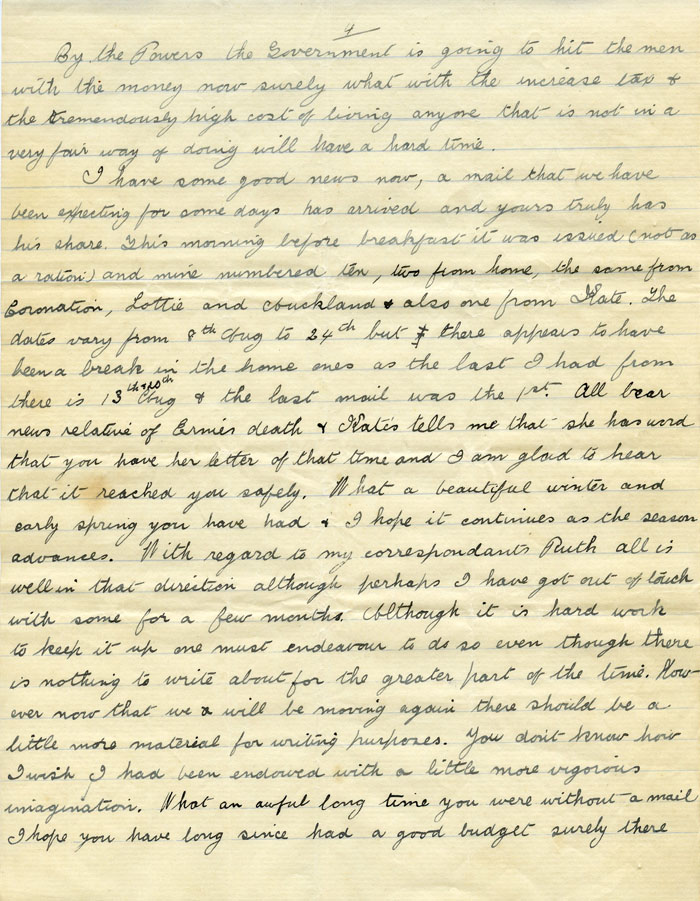 4
By the Powers the Government is going to hit the men
with the money now surely what with the increase tax &
the tremendously high cost of living anyone that is not in a
very fair way of doing will have a hard time.
I have some good news now, a mail that we have
been expecting for some days has arrived and yours truly has
his share. This morning before breakfast it was issued (not as
a ration) and mine numbered ten, two from home, the same from
Coronation, Lottie and Auckland & also one from Kate. The
dates vary from 8th Aug to 24th but there appears to have
been a break in the home ones as the last I had from
there is 13th & 20th Aug & the last mail was the 1st. All bear
news relative of Ernie's death & Kate's tells me that she has word
that you have her letter of that time and I am glad to hear
that it reached you safely. What a beautiful winter and
early spring you have had & I hope it continues as the season
advances. With regard to my correspondants Ruth all is
well in that direction although perhaps I have got out of touch
with some for a few months. Although it is hard work
to keep it up one must endeavour to do so even though there
is nothing to write about for the greater part of the time. How-
ever now that we will be moving again there should be a
little more material for writing purposes. You dont know how
I wish I had been endowed with a little more vigorous
imagination. What an awful long time you were without a mail
I hope you have long since had a good budget surely there